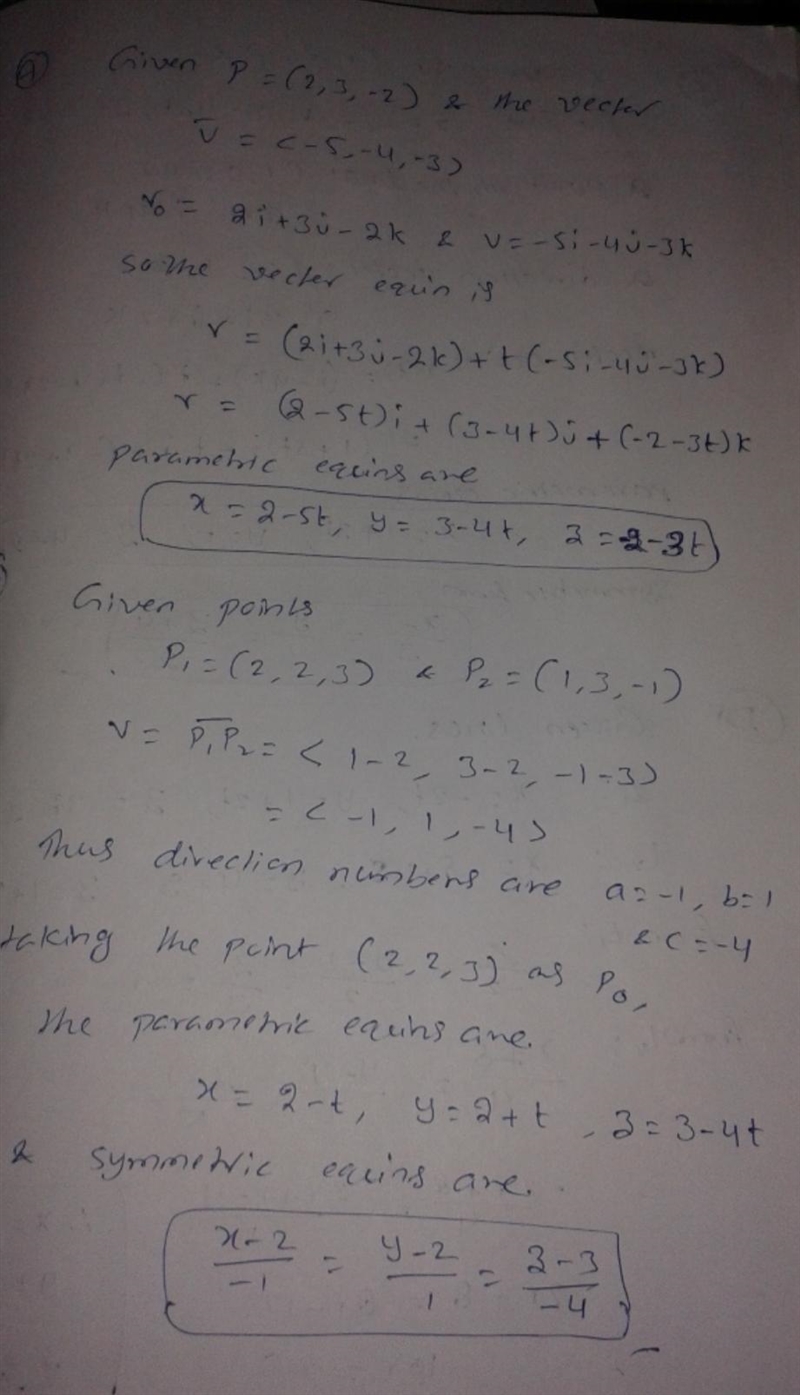 Given P = (2, 3, -2) & the vector
v̄ = <-5, -4, -3>
r₀ = 2i+3j-2k & v=-5i-4j-3k
so the vector equin is
r = (2i+3j-2k)+t(-5i-4j-3k)
r = (2-5t)i + (3-4t)j + (-2-3t)k
parametric equins are
x = 2-5t, y = 3-4t, z = -2-3t
Given points
P₁ = (2, 2, 3) & P₂ = (1, 3, -1)
v = P₁P₂ = < 1-2, 3-2, -1-3>
= < -1, 1, -4>
Thus direction numbers are a=-1, b=1
& c = -4
taking the point (2, 2, 3) as P₀,
the parametric equins are.
x = 2-t, y = 2+t, z = 3-4t
& symmetric equins are.
x-2/-1 = y-2/1 = z-3/-4